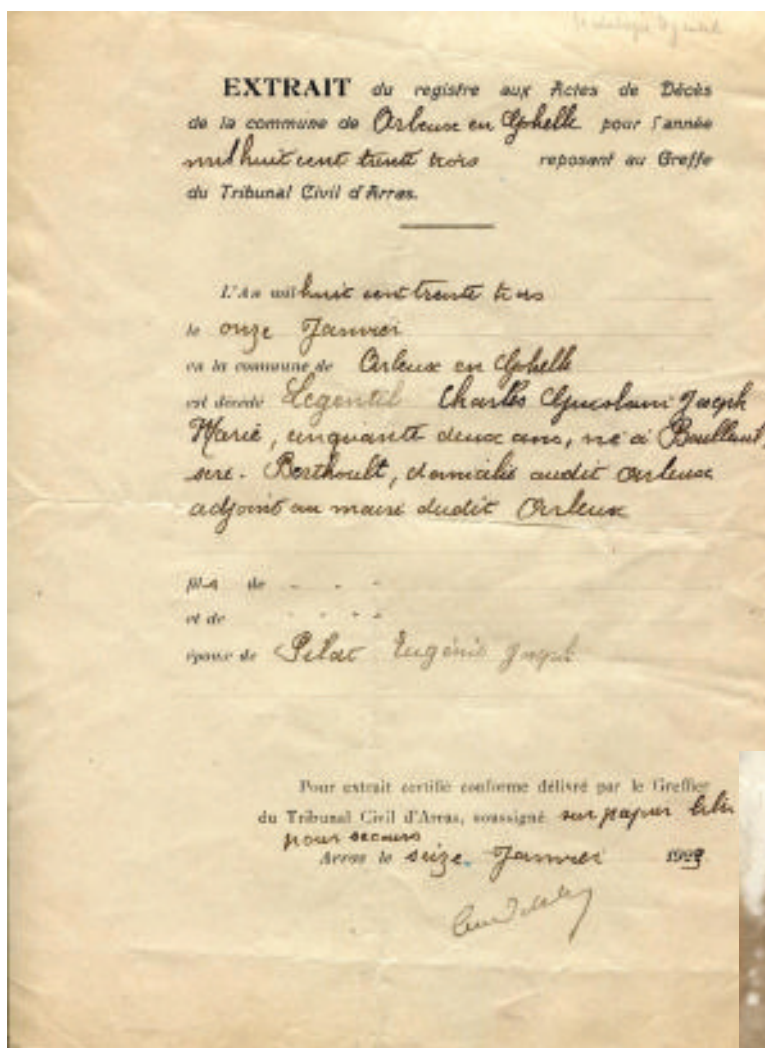 EXTRAIT du registre aux Actes de Décès
de la commune de Arleux en Gohelle pour l'année
mil huit cent trente trois reposant au Greffe
du Tribunal Civil d'Arras.
L'An mil huit cent trente trois
le onze Janvier
en la commune de Arleux en Gohelle
est décédé Legentil Charles Guislain Joseph
Marie, cinquante deux ans, né à
Berthoult, domicilié audit Arleux
adjoint au maire dudit Arleux
fils de - - -
et de - - - -
époux de Pilat Eugénie Joseph
Pour extrait certifié conforme délivré par le Greffier
du Tribunal Civil d'Arras, soussigné sur papier libre
pour secours
Arras le seize Janvier